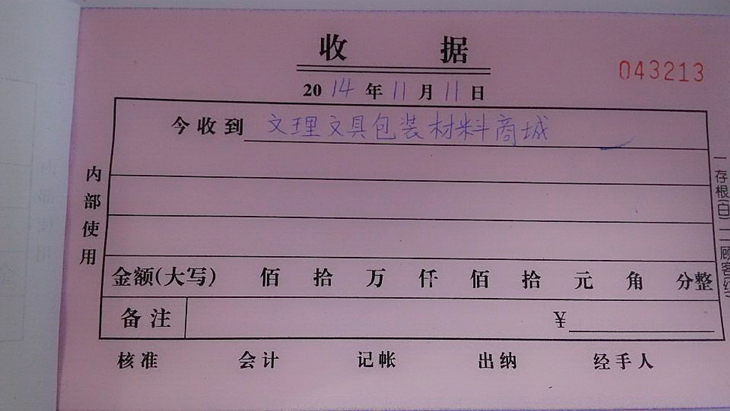 收据
043213
2014年11月11日
今收到 文理文具包装材料商城
内部使用
一存根(白) 二顾客(红)
金额(大写) 佰 拾 万 仟 佰 拾 元 角 分整
备注 ¥
核准 会计 记帐 出纳 经手人